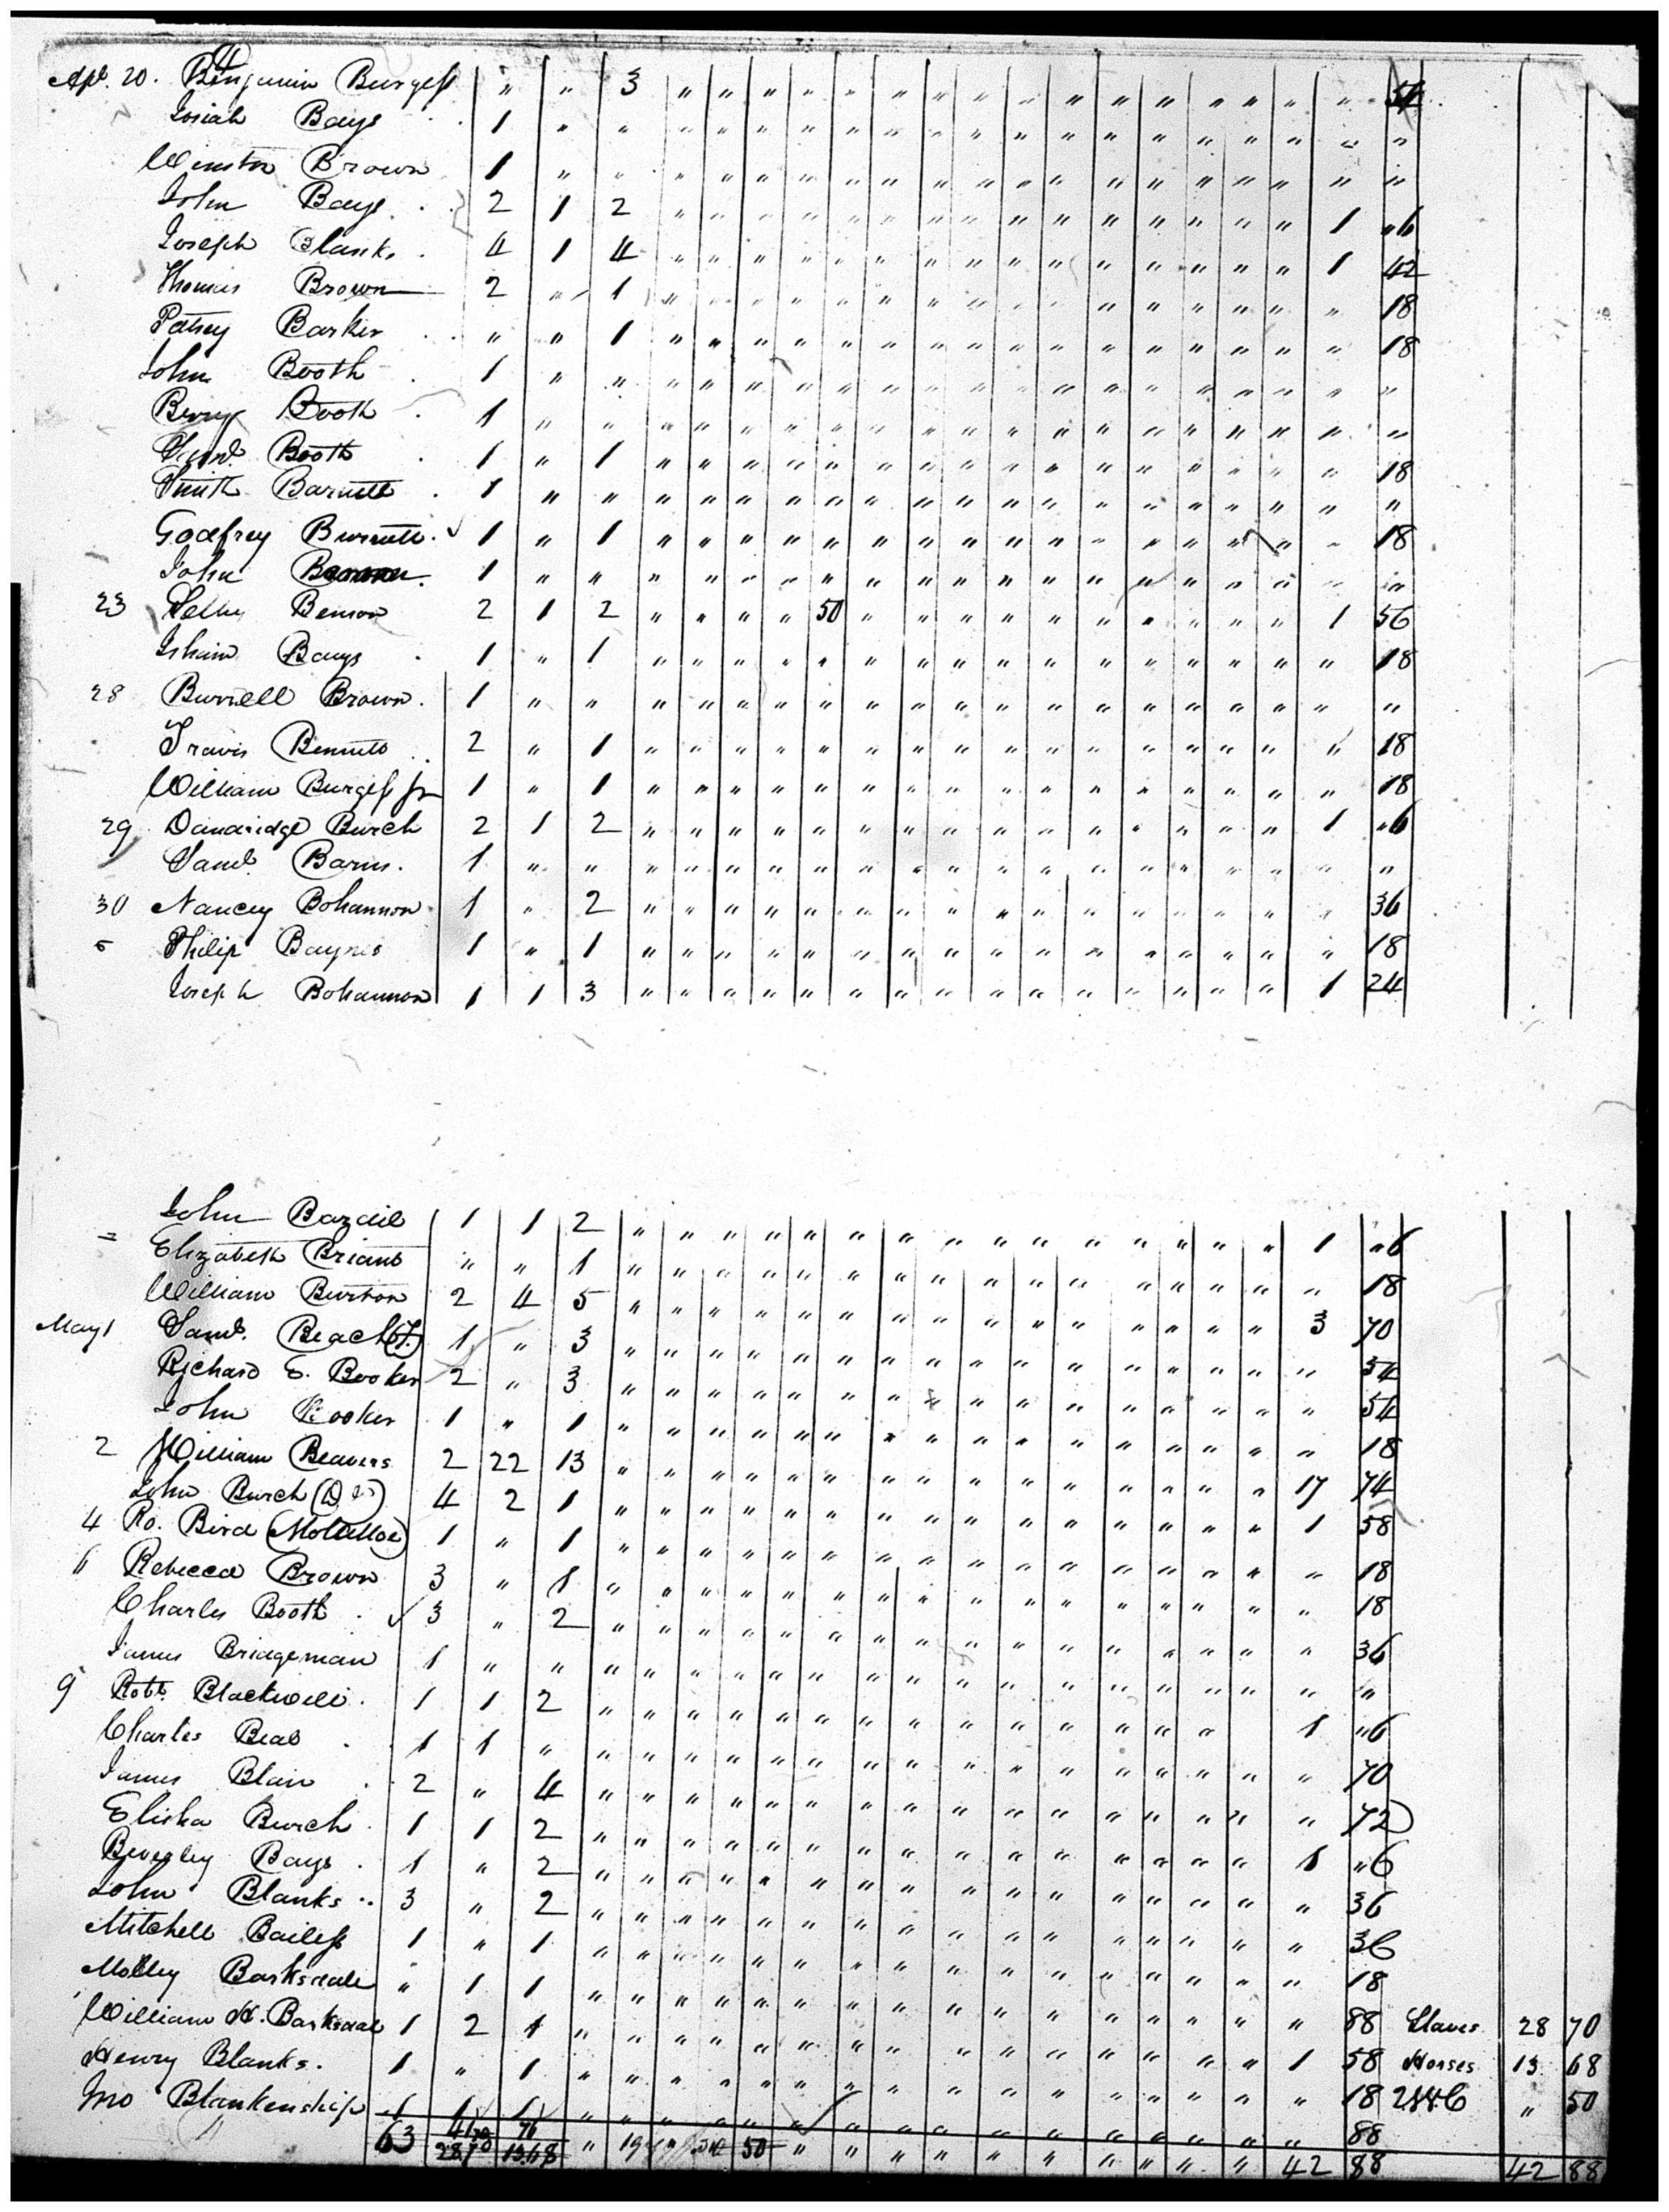 Apl. 20. Benjamin Burgess " " 3 " " " " " " " " " " " " " " " " 54
Josiah Bays 1 " " " " " " " " " " " " " " " " " " "
Winston Brown 1 " " " " " " " " " " " " " " " " " " "
John Bays 2 1 2 " " " " " " " " " " " " " " " 1 " 6
Joseph Blanks 4 1 4 " " " " " " " " " " " " " " " 1 42
Thomas Brown 2 " 1 " " " " " " " " " " " " " " " " 18
Patsey Barker " " 1 " " " " " " " " " " " " " " " " 18
John Booth 1 " " " " " " " " " " " " " " " " " " "
Berry Booth 1 " " " " " " " " " " " " " " " " " " "
Booth 1 " 1 " " " " " " " " " " " " " " " " 18
Smith Barnett 1 " " " " " " " " " " " " " " " " " " "
Godfrey Burnett. 1 " 1 " " " " " " " " " " " " " " " " 18
John 1 " " " " " " " " " " " " " " " " " " "
23 Benson 2 1 2 " " " " 50 " " " " " " " " " " 1 56
Isham Bays 1 " 1 " " " " " " " " " " " " " " " " 18
28 Burrell Brown. 1 " " " " " " " " " " " " " " " " " " "
Travis Bennett 2 " 1 " " " " " " " " " " " " " " " " 18
William Burgess Jr 1 " 1 " " " " " " " " " " " " " " " " 18
29 Dandridge Burch 2 1 2 " " " " " " " " " " " " " " " 1 " 6
Saml. Barns. 1 " " " " " " " " " " " " " " " " " " "
30 Nancey Bohannon 1 " 2 " " " " " " " " " " " " " " " " 36
Philip Baynes 1 " 1 " " " " " " " " " " " " " " " " 18
Joseph Bohannon 1 1 3 " " " " " " " " " " " " " " " 1 24
John Bazdil 1 1 2 " " " " " " " " " " " " " " " 1 " 6
Elizabeth Briant " " 1 " " " " " " " " " " " " " " " " 18
William Burton 2 4 5 " " " " " " " " " " " " " " " 3 70
May 1 Saml. Beach 1 " 3 " " " " " " " " " " " " " " " " 54
Richard E. Booker 2 " 3 " " " " " " " " " " " " " " " " 54
John Booker 1 " 1 " " " " " " " " " " " " " " " " 18
2 William Beavers 2 22 13 " " " " " " " " " " " " " " " 17 74
John Burch 4 2 1 " " " " " " " " " " " " " " " 1 58
4 Ro. Bird (Molattoe) 1 " 1 " " " " " " " " " " " " " " " " 18
6 Rebecca Brown 3 " 1 " " " " " " " " " " " " " " " " 18
Charles Booth 3 " 2 " " " " " " " " " " " " " " " " 36
James Bridgeman 1 " " " " " " " " " " " " " " " " " " "
9 Robt. Blackwell. 1 1 2 " " " " " " " " " " " " " " " 1 " 6
Charles Beal 1 1 " " " " " " " " " " " " " " " " " 70
James Blair 2 " 4 " " " " " " " " " " " " " " " " 72
Elisha Burch 1 1 2 " " " " " " " " " " " " " " " 1 " 6
Beverley Bays 1 " 2 " " " " " " " " " " " " " " " " 36
John Blanks 3 " 2 " " " " " " " " " " " " " " " " 36
Mitchell Bailess 1 " 1 " " " " " " " " " " " " " " " " 18
Molley Barksdale " 1 1 " " " " " " " " " " " " " " " " 88 Slaves 28 70
William H. Barksdal 1 2 1 " " " " " " " " " " " " " " " 1 58 Horses 13 68
Henry Blanks. 1 " 1 " " " " " " " " " " " " " " " " 18 " 50
Jno Blankenship 1 1 1 " " " " " " " " " " " " " " " " 88
63 41 76 50 42 88 42 88
28.70 13.68